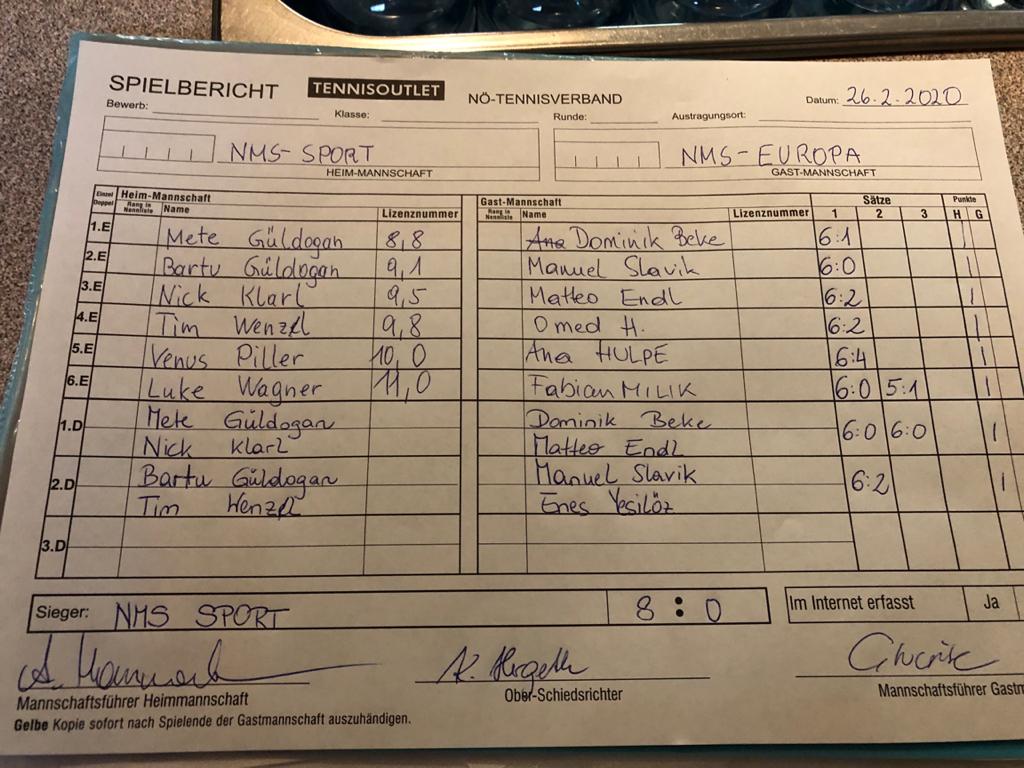 SPIELBERICHT TENNISOUTLET NÖ-TENNISVERBAND Datum: 26.2.2020
Bewerb: Klasse: Runde: Austragungsort:
NMS-SPORT NMS-EUROPA
HEIM-MANNSCHAFT GAST-MANNSCHAFT
Einzel Doppel Heim-Mannschaft Gast-Mannschaft Sätze Punkte
Rang in Nennliste Name Lizenznummer Rang in Nennliste Name Lizenznummer 1 2 3 H G
1.E Mete Güldogan 8,8 Ana Dominik Beke 6:1 |
2.E Bartu Güldogan 9,1 Manuel Slavik 6:0 |
3.E Nick Klarl 9,5 Matteo Endl 6:2 |
4.E Tim Wenzel 9,8 Omed H. 6:2 |
5.E Venus Piller 10,0 Ana HULPE 6:4 |
6.E Luke Wagner 11,0 Fabian MILIK 6:0 5:1 |
1.D Mete Güldogan Dominik Beke 6:0 6:0 |
Nick Klarl Matteo Endl
2.D Bartu Güldogan Manuel Slavik 6:2 |
Tim Wenzel Enes Yesilöz
3.D
Sieger: NMS SPORT 8:0 Im Internet erfasst Ja
Mannschaftsführer Heimmannschaft Ober-Schiedsrichter Mannschaftsführer Gastm
Gelbe Kopie sofort nach Spielende der Gastmannschaft auszuhändigen.